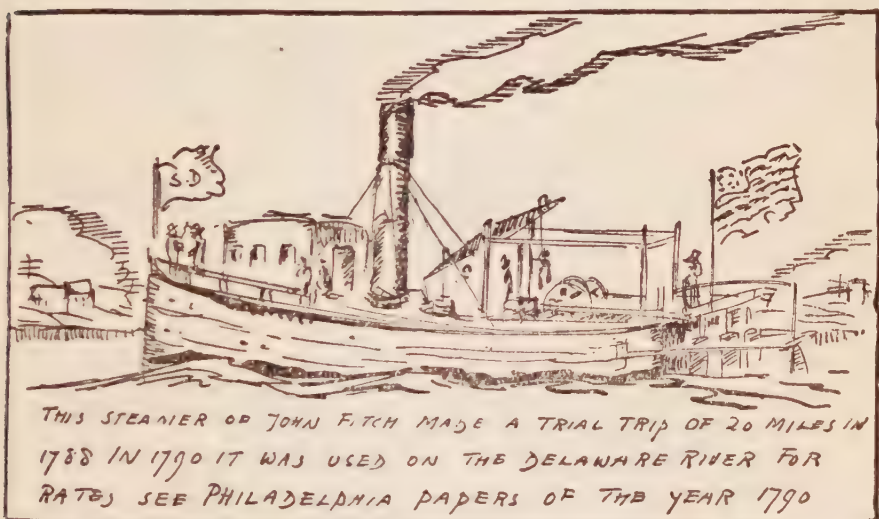 S.D
THIS STEAMER OF JOHN FITCH MADE A TRIAL TRIP OF 20 MILES IN
1788 IN 1790 IT WAS USED ON THE DELAWARE RIVER FOR
RATES SEE PHILADELPHIA PAPERS OF THE YEAR 1790